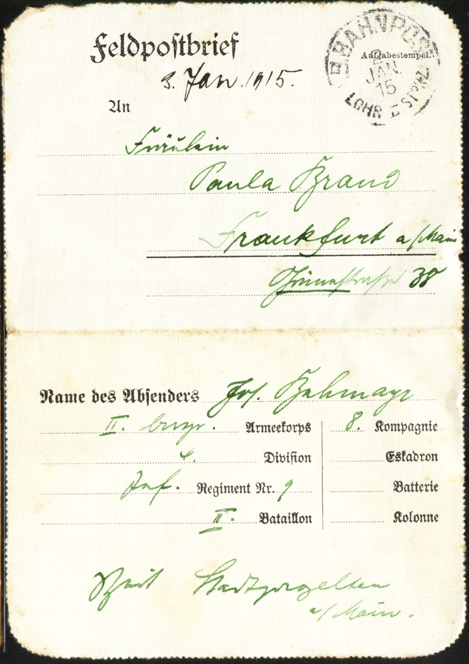 Feldpostbrief
Aufgabestempel
BAHNPOST
2
JAN.
15
LOHR
3. Jan. 1915.
An
Fräulein
Paula Brand
Frankfurt a/Main
Grünestraße 38
Name des Absenders Jos.
II. bayr. Armeekorps 8. Kompagnie
4. Division Eskadron
Inf. Regiment Nr. 9 Batterie
II. Bataillon Kolonne
Zeit Stadtprozelten
a/Main.